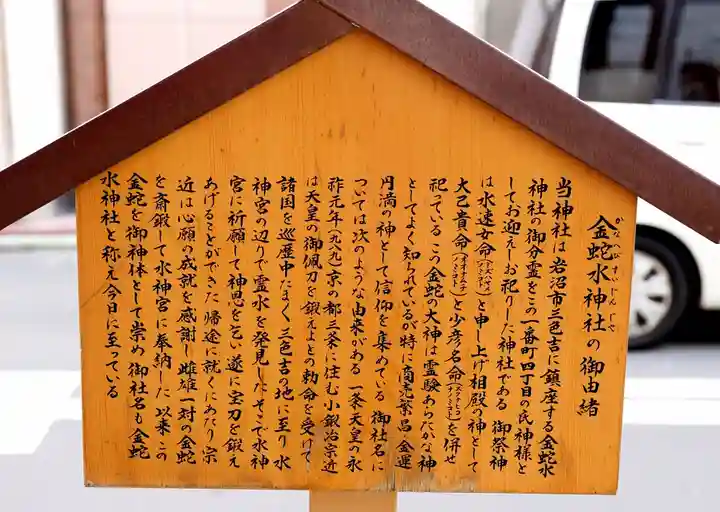 金蛇水神社の御由緒
かなへびすいじんじゃ
当神社は岩沼市三色吉に鎮座する金蛇水
神社の御分霊をこの一番町四丁目の氏神様と
してお迎えしお祀りした神社である 御祭神
は水速女命(ミズハヤメノミコト)と申し上げ相殿の神として
大己貴命(オオナムチノミコト)と少彦名命(スクナヒコナノミコト)を併せ
祀っている この金蛇の大神は霊験あらたかな神
としてよく知られているが特に商売繁昌・金運
円満の神として信仰を集めている 御社名に
ついては次のような由来がある 一条天皇の永
祚元年(九八九)京の都三条に住む小鍛冶宗近
は天皇の御佩刀を鍛えよとの勅命を受けて
諸国を巡歴中たまく三色吉の地に至り 水
神宮の辺りで霊水を発見した そこで水神
宮に祈願して神恩を乞い遂に宝刀を鍛え
あげることができた 帰途に就くにあたり宗
近は心願の成就を感謝し雌雄一対の金蛇
を斎鍛して水神宮に奉納した 以来この
金蛇を御神体として崇め御社名も金蛇
水神社と称え今日に至っている